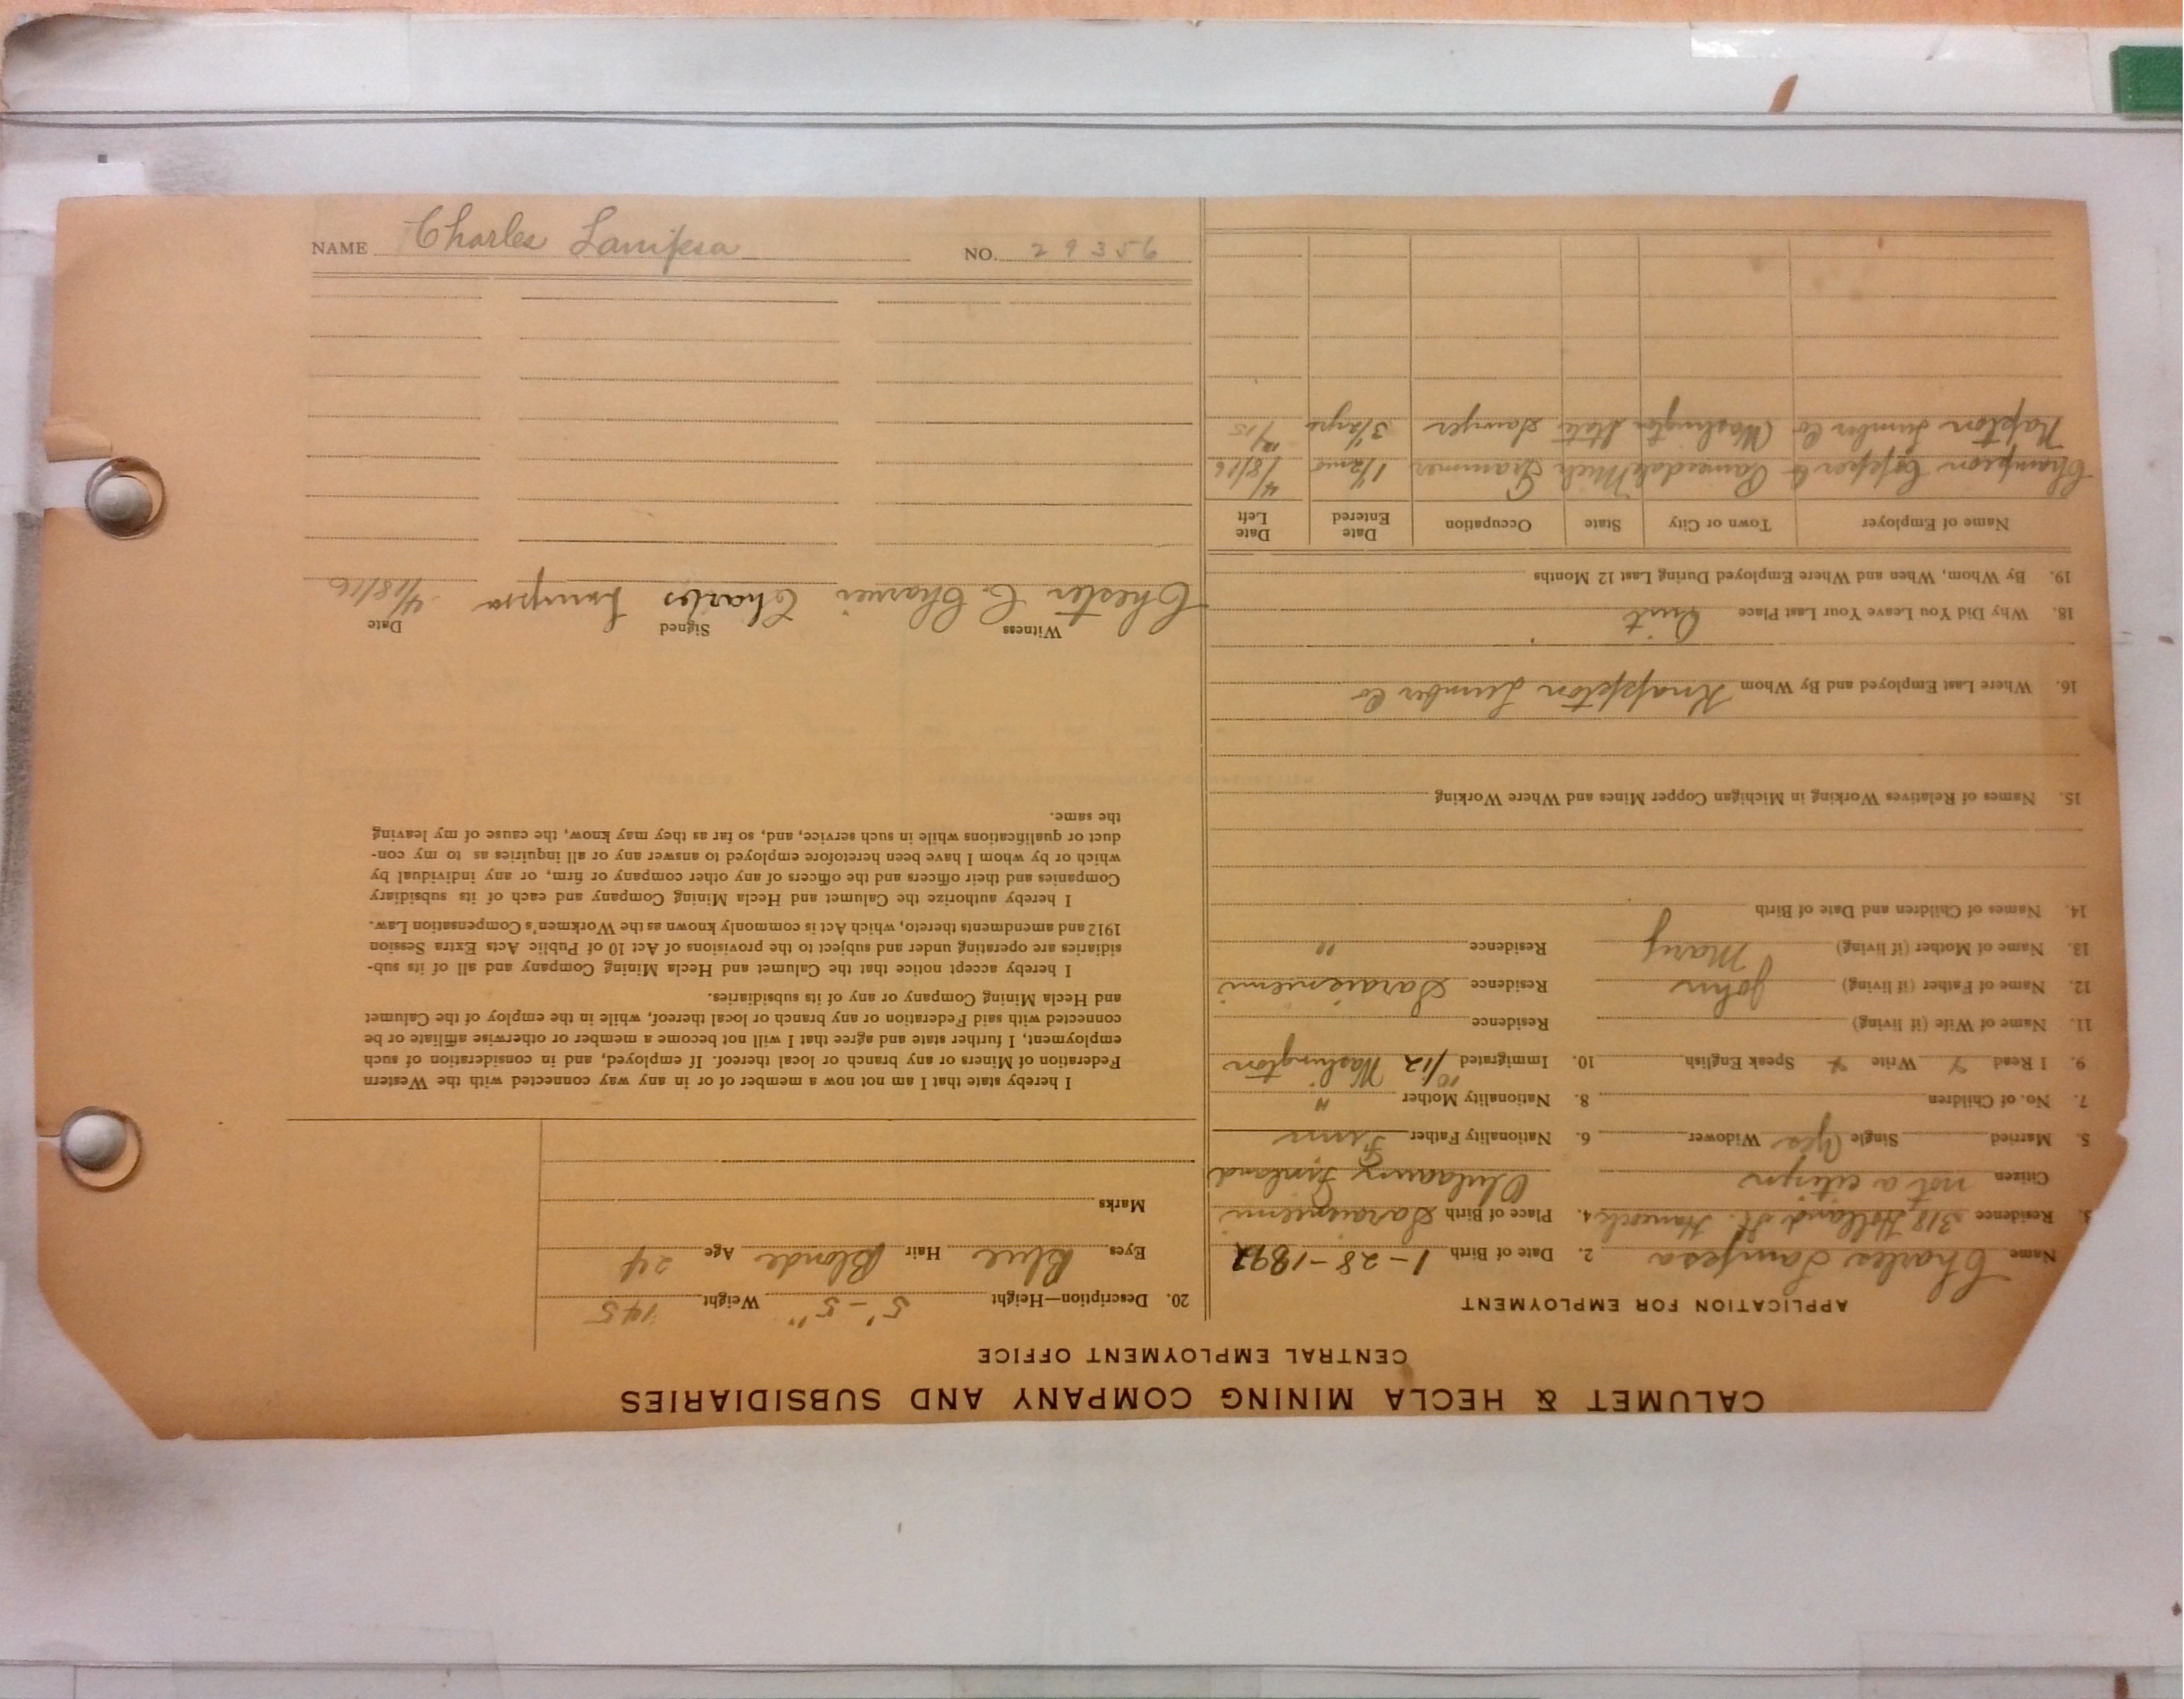 CALUMET & HECLA MINING COMPANY AND SUBSIDIARIES
CENTRAL EMPLOYMENT OFFICE
APPLICATION FOR EMPLOYMENT
Name Charles Lampsa 2. Date of Birth 1-28-1892
3. Residence 318 Holland St. Hancock 4. Place of Birth Saraisniemi
Citizen not a citizen Finland
5. Married Single Yes Widower 6. Nationality Father Finn
7. No. of Children 8. Nationality Mother "
9. I Read Write Speak English 10. Immigrated 10/12 Washington
11. Name of Wife (if living) Residence
12. Name of Father (if living) John Residence Saraisniemi
13. Name of Mother (if living) Mary Residence "
14. Names of Children and Date of Birth
15. Names of Relatives Working in Michigan Copper Mines and Where Working
16. Where Last Employed and By Whom Knappton Lumber Co
18. Why Did You Leave Your Last Place Quit
19. By Whom, When and Where Employed During Last 12 Months
Name of Employer Town or City State Occupation Date Entered Date Left
Champion Copper Co Painesdale Mich Trammer 1 1/2 mo 4/8/16
Napton Lumber Co Washington State Sawyer 3 1/2 yrs /15
20. Description—Height 5'-5" Weight 145
Eyes Blue Hair Blonde Age 24
Marks
I hereby state that I am not now a member of or in any way connected with the Western
Federation of Miners or any branch or local thereof. If employed, and in consideration of such
employment, I further state and agree that I will not become a member or otherwise affiliate or be
connected with said Federation or any branch or local thereof, while in the employ of the Calumet
and Hecla Mining Company or any of its subsidiaries.
I hereby accept notice that the Calumet and Hecla Mining Company and all of its sub-
sidiaries are operating under and subject to the provisions of Act 10 of Public Acts Extra Session
1912 and amendments thereto, which Act is commonly known as the Workmen's Compensation Law.
I hereby authorize the Calumet and Hecla Mining Company and each of its subsidiary
Companies and their officers and the officers of any other company or firm, or any individual by
which or by whom I have been heretofore employed to answer any or all inquiries as to my con-
duct or qualifications while in such service, and, so far as they may know, the cause of my leaving
the same.
Witness Signed Date
Chester C. Charles Lampsa 4/18/16
NAME Charles Lampsa NO. 29356